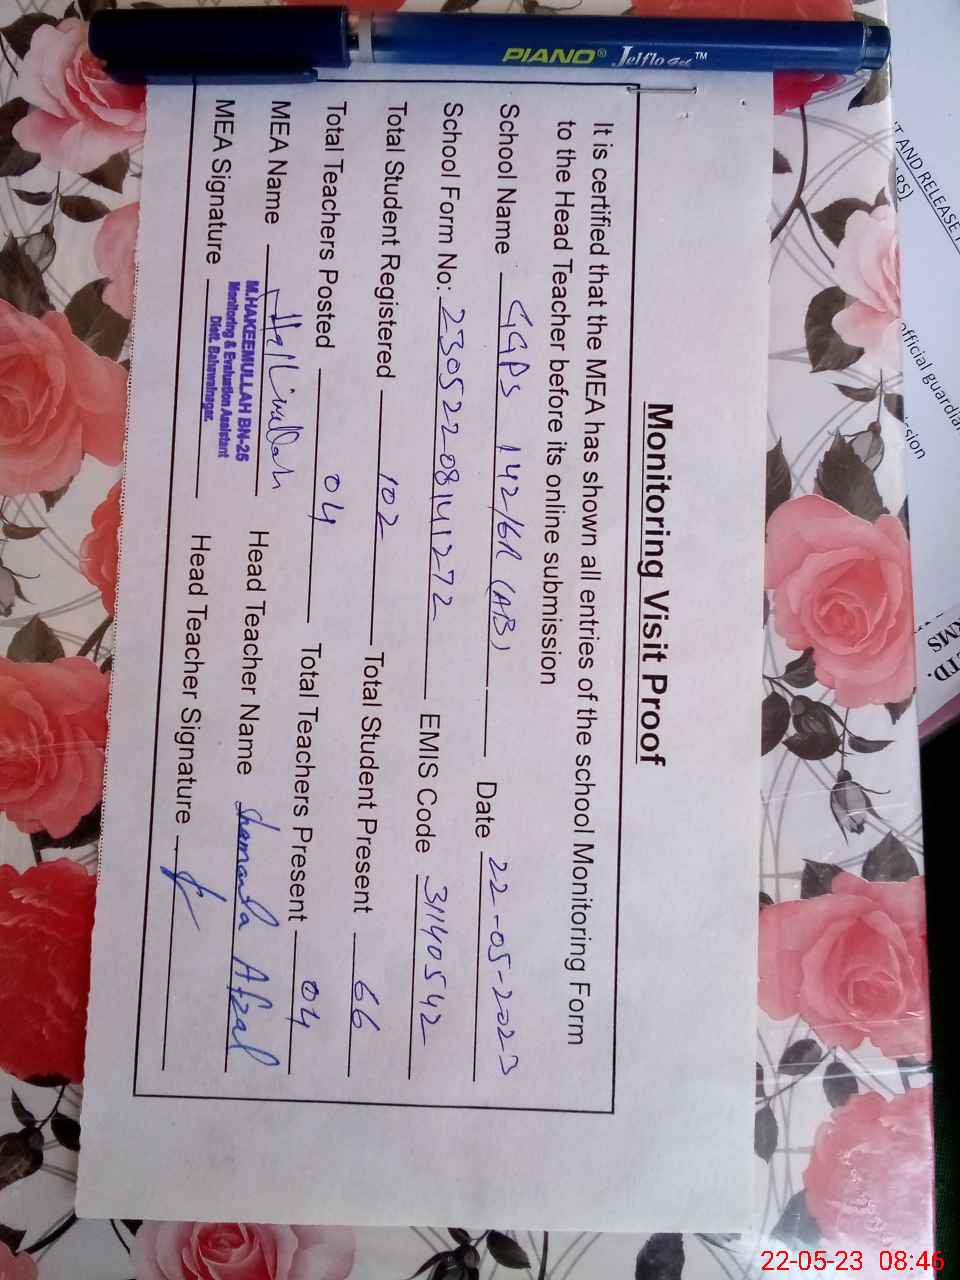 PIANO® Jelflo Gel™
Monitoring Visit Proof
It is certified that the MEA has shown all entries of the school Monitoring Form
to the Head Teacher before its online submission
School Name GGPS 142/6R (AB) Date 22-05-2023
School Form No: 23052208141272 EMIS Code 31140542
Total Student Registered 102 Total Student Present 66
Total Teachers Posted 04 Total Teachers Present 04
MEA Name Head Teacher Name Afzal
M.HAKEEMULLAH BN-25
Monitoring & Evaluation Assistant
Distt. Bahawalnagar.
MEA Signature Head Teacher Signature
T AND RELEASE
official guardian
ssion
TD.
RMS
22-05-23 08:46